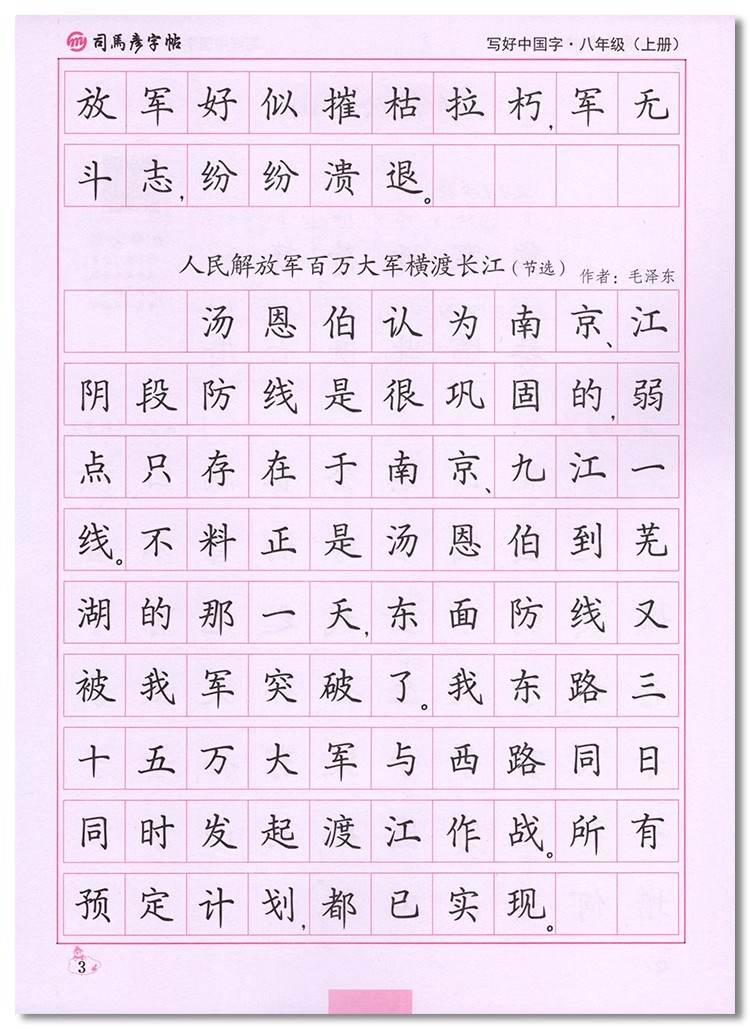 司馬彦字帖
写好中国字·八年级（上册）
放军好似摧枯拉朽，军无
斗志，纷纷溃退。
人民解放军百万大军横渡长江（节选） 作者：毛泽东
汤恩伯认为南京、江
阴段防线是很巩固的，弱
点只存在于南京、九江一
线。不料正是汤恩伯到芜
湖的那一天，东面防线又
被我军突破了。我东路三
十五万大军与西路同日
同时发起渡江作战。所有
预定计划，都已实现。
3